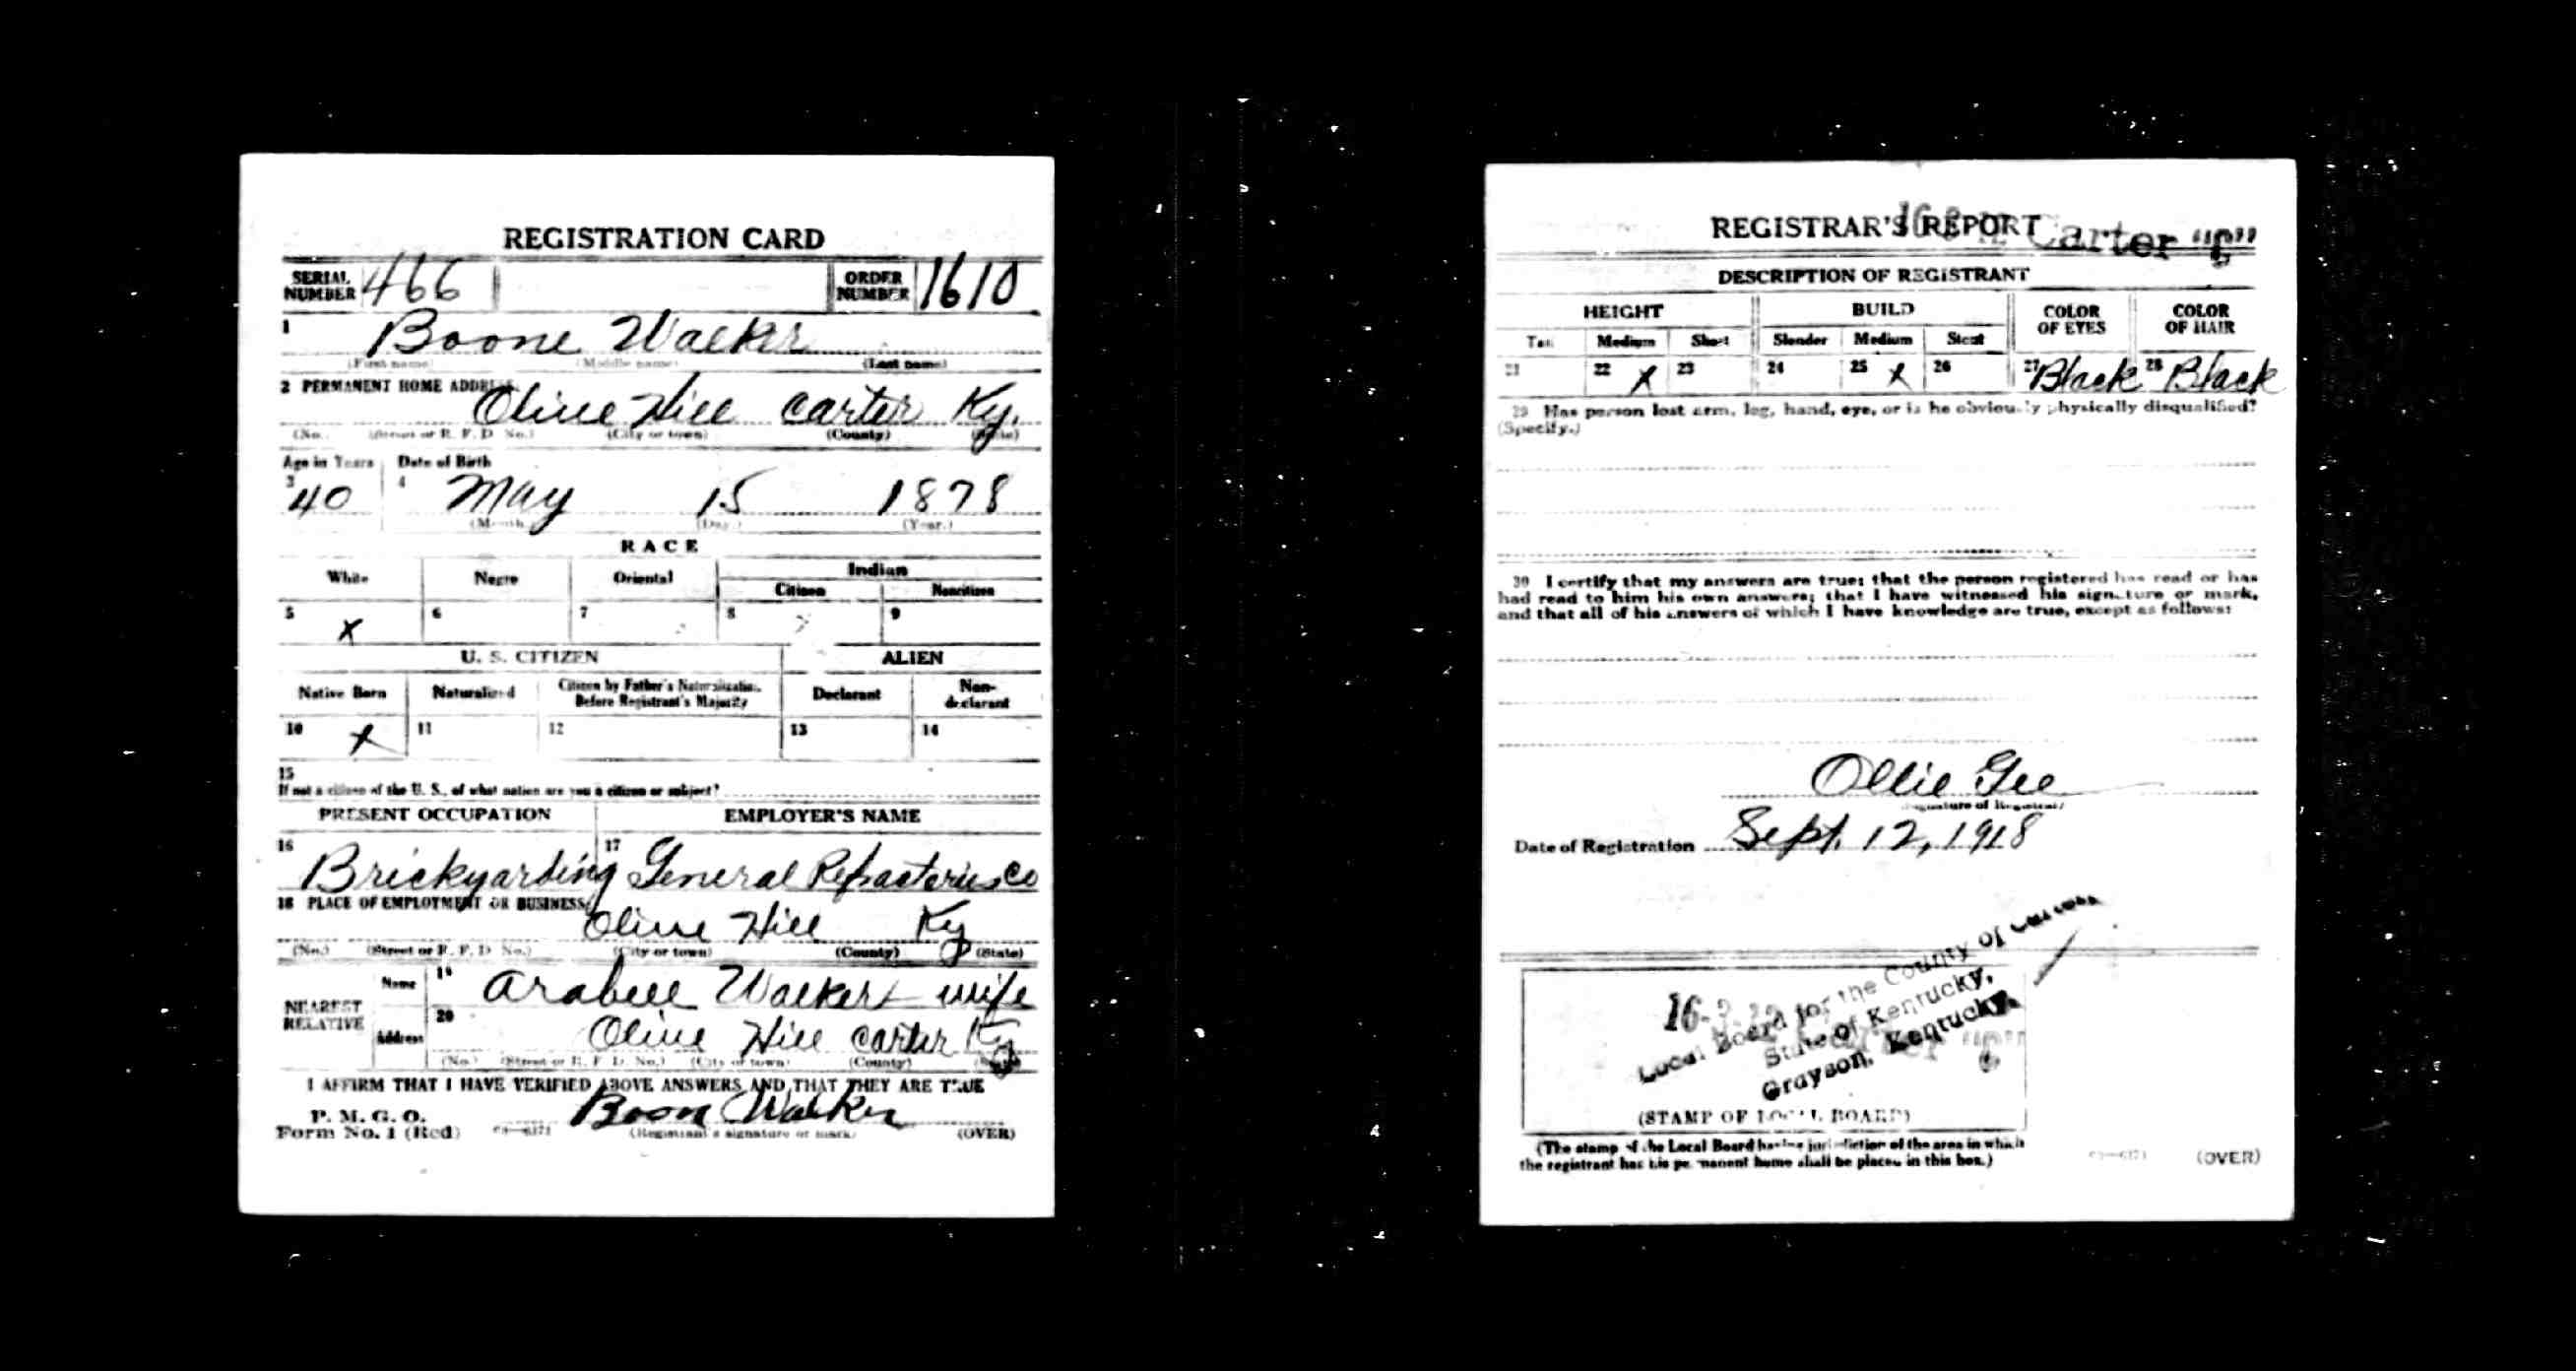 REGISTRATION CARD
SERIAL NUMBER 466 ORDER NUMBER 1610
1 Boone Walker
(First name) (Middle name) (Last name)
2 PERMANENT HOME ADDRESS
Olive Hill Carter Ky.
(No.) (Street or R. F. D. No.) (City or town) (County) (State)
Age in Years Date of Birth
3 40 4 May 15 1878
(Month.) (Day.) (Year.)
RACE
White Negro Oriental Indian
Citizen Noncitizen
5 X 6 7 8 9
U. S. CITIZEN ALIEN
Native Born Naturalized Citizen by Father's Naturalization Before Registrant's Majority Declarant Non-declarant
10 X 11 12 13 14
15
If not a citizen of the U. S., of what nation are you a citizen or subject?
PRESENT OCCUPATION EMPLOYER'S NAME
16 Brickyarding 17 General Refractories Co
18 PLACE OF EMPLOYMENT OR BUSINESS
Olive Hill Ky
(No.) (Street or R. F. D. No.) (City or town) (County) (State)
NEAREST RELATIVE
Name 19 Arabell Walker wife
Address 20 Olive Hill Carter Ky
(No.) (Street or R. F. D. No.) (City or town) (County) (State)
I AFFIRM THAT I HAVE VERIFIED ABOVE ANSWERS AND THAT THEY ARE TRUE
P. M. G. O.
Form No. 1 (Red) Boon Walker
(Registrant's signature or mark) (OVER)
REGISTRAR'S REPORT
Carter "C"
DESCRIPTION OF REGISTRANT
HEIGHT BUILD COLOR OF EYES COLOR OF HAIR
Tall Medium Short Slender Medium Stout
21 22 X 23 24 25 X 26 27 Black 28 Black
29 Has person lost arm, leg, hand, eye, or is he obviously physically disqualified?
(Specify.)
30 I certify that my answers are true; that the person registered has read or has
had read to him his own answers; that I have witnessed his signature or mark,
and that all of his answers of which I have knowledge are true, except as follows:
Ollie Gee
(Signature of Registrar)
Date of Registration Sept. 12, 1918
Local Board for the County of Carter
State of Kentucky,
Grayson, Kentucky.
(STAMP OF LOCAL BOARD)
(The stamp of the Local Board having jurisdiction of the area in which
the registrant has his permanent home shall be placed in this box.)
(OVER)